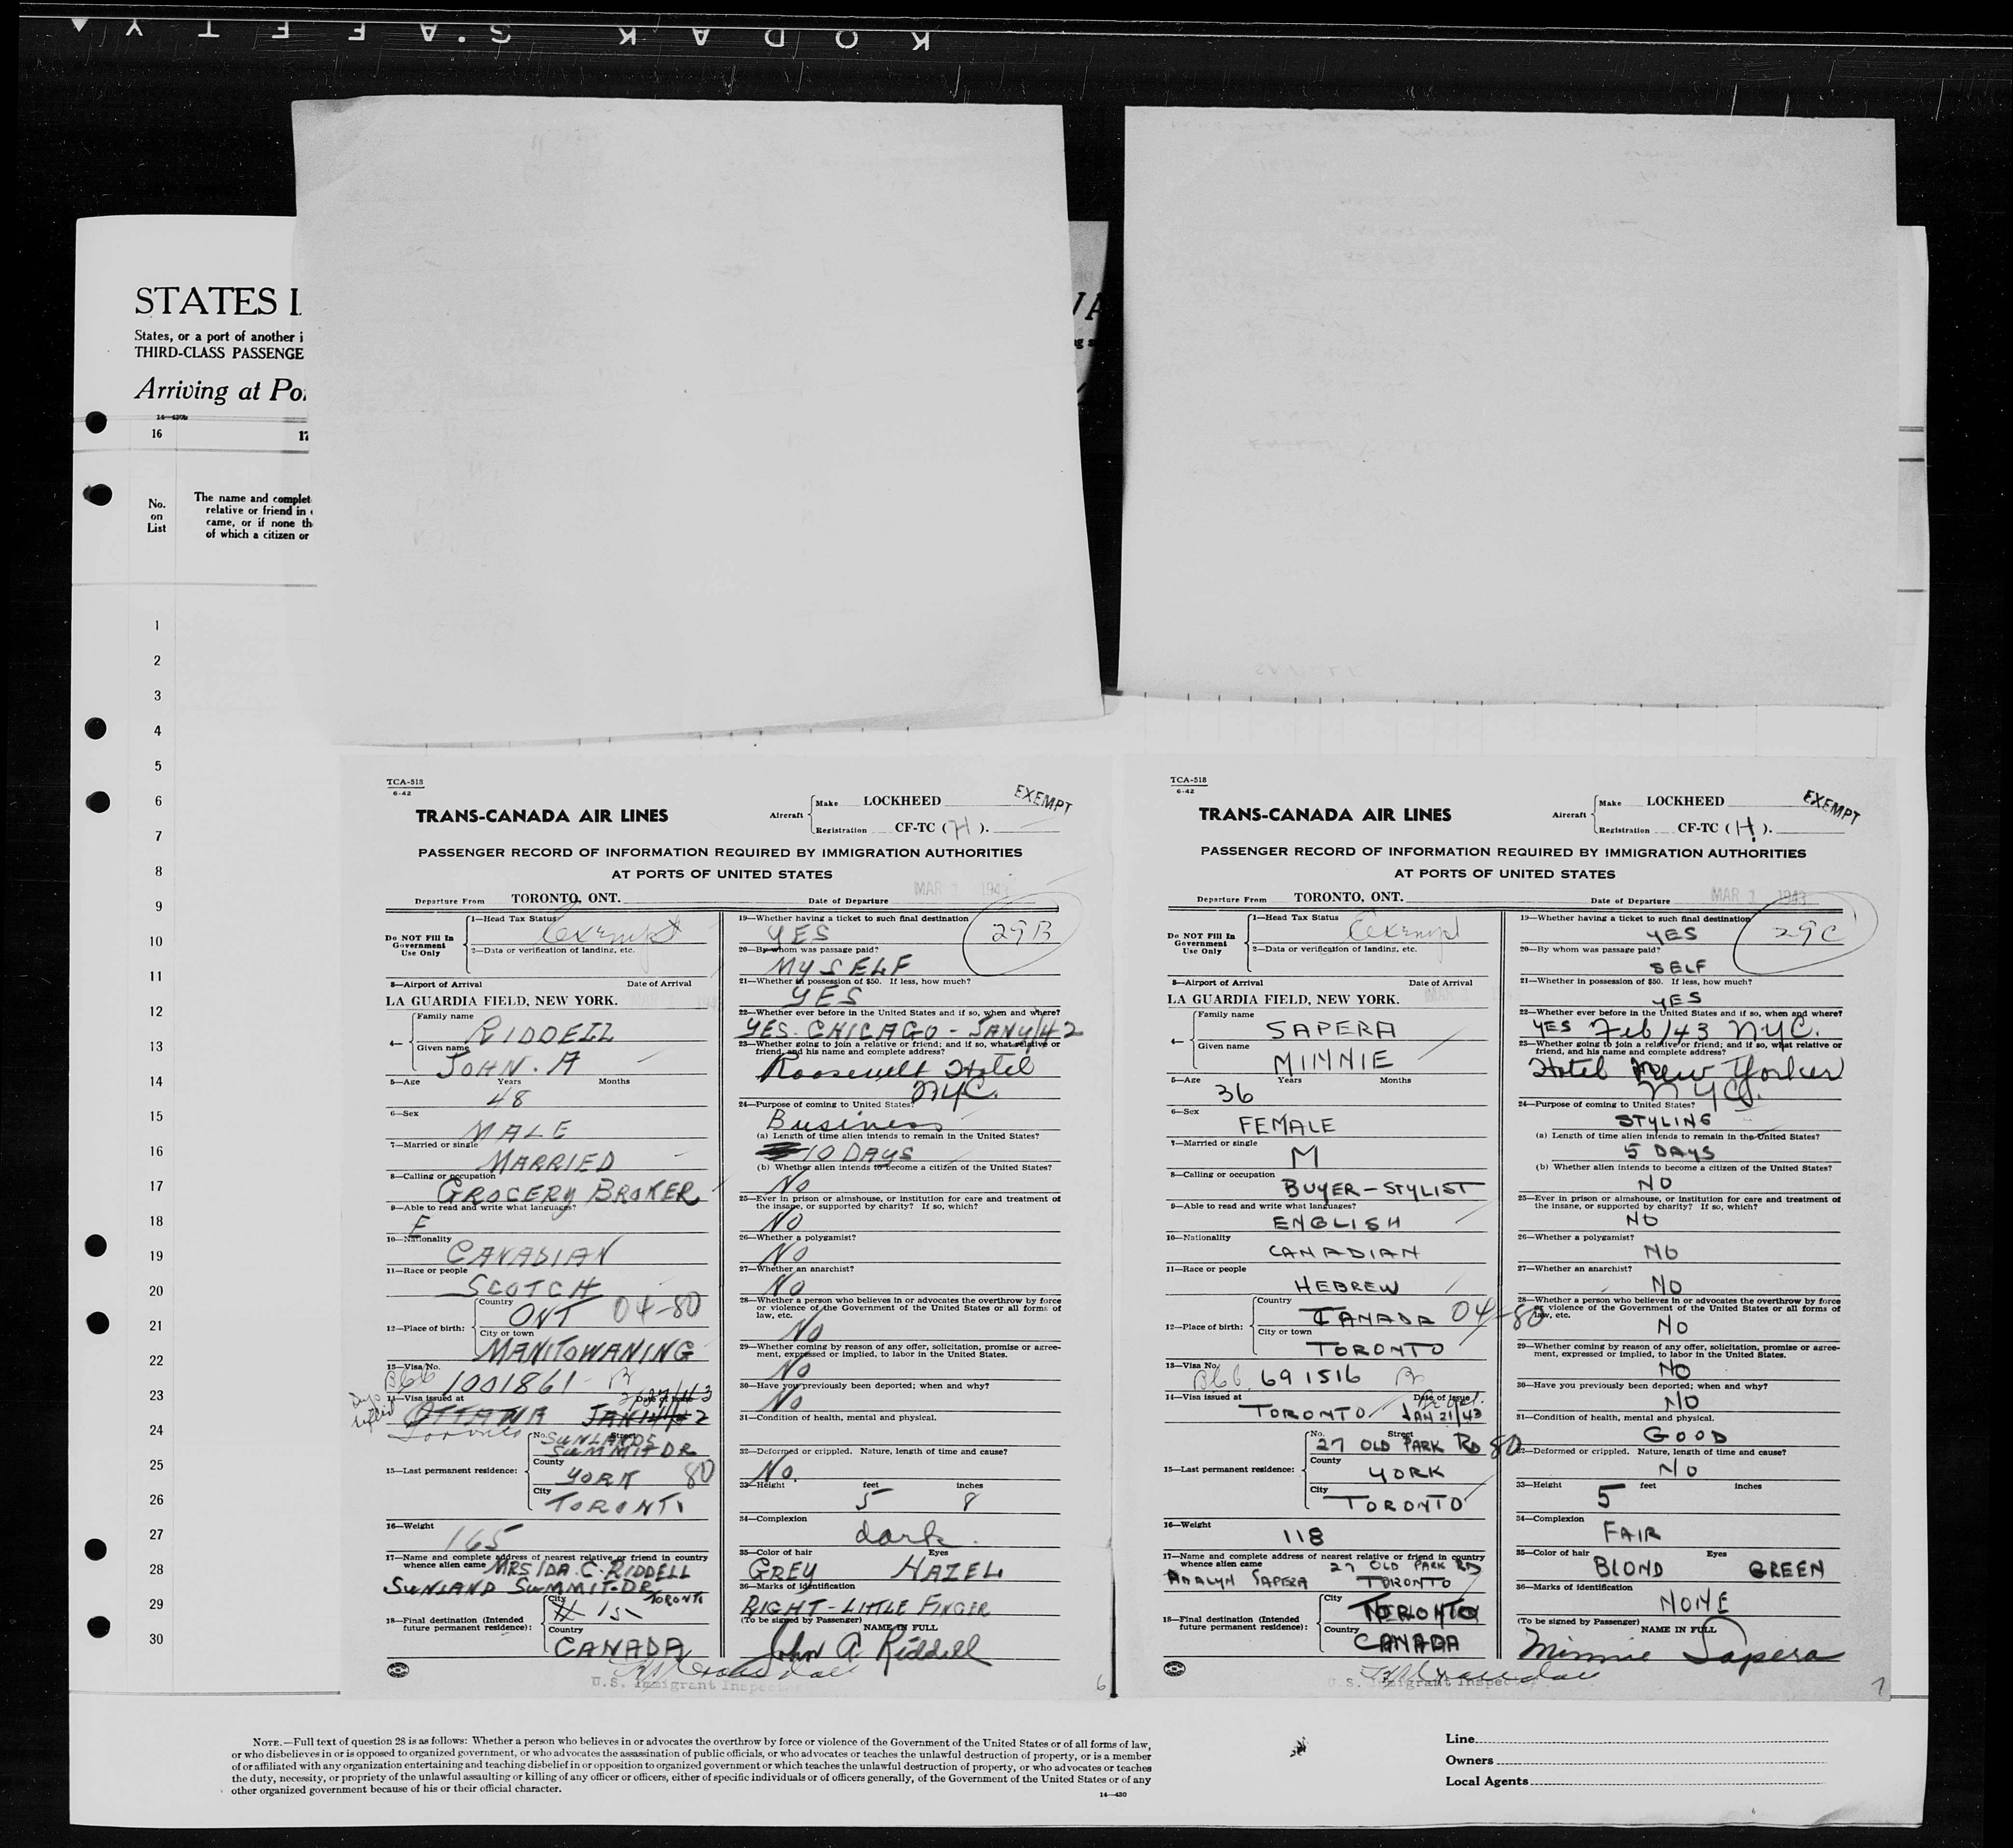 KODAK SAFETY
STATES I
States, or a port of another i
THIRD-CLASS PASSENGE
Arriving at Por
14—430b
16 17
No.
on
List
The name and complet
relative or friend in
came, or if none th
of which a citizen or
1
2
3
4
5
6
7
8
9
10
11
12
13
14
15
16
17
18
19
20
21
22
23
24
25
26
27
28
29
30
TCA-518
6-42
TRANS-CANADA AIR LINES
Aircraft Make LOCKHEED
Registration CF-TC (H).
EXEMPT
PASSENGER RECORD OF INFORMATION REQUIRED BY IMMIGRATION AUTHORITIES
AT PORTS OF UNITED STATES
MAR 1 1943
Departure From TORONTO, ONT. Date of Departure
Do NOT Fill In Government Use Only
1—Head Tax Status Exempt
2—Data or verification of landing, etc.
3—Airport of Arrival Date of Arrival
LA GUARDIA FIELD, NEW YORK.
4— Family name RIDDELL
Given name JOHN. A
5—Age Years Months
48
6—Sex
MALE
7—Married or single
MARRIED
8—Calling or occupation
GROCERY BROKER
9—Able to read and write what languages?
E
10—Nationality
CANADIAN
11—Race or people
SCOTCH
12—Place of birth: Country
ONT 04-80
City or town
MANITOWANING
13—Visa No.
B66 1001861
14—Visa issued at Date of Issue
2/27/43
OTTAWA JAN 14/42
Toronto
15—Last permanent residence: No. Street
SUNLANDS
SUMMIT DR
County
YORK 80
City
TORONTO
16—Weight
165
17—Name and complete address of nearest relative or friend in country
whence alien came MRS IDA. C. RIDDELL
SUNLAND SUMMIT-DR TORONTO
18—Final destination (Intended future permanent residence): City
Country
CANADA
19—Whether having a ticket to such final destination
YES 29B
20—By whom was passage paid?
MYSELF
21—Whether in possession of $50. If less, how much?
YES
22—Whether ever before in the United States and if so, when and where?
YES. CHICAGO - JANY/42
23—Whether going to join a relative or friend; and if so, what relative or
friend, and his name and complete address?
Roosevelt Hotel
NYC.
24—Purpose of coming to United States?
Business
(a) Length of time alien intends to remain in the United States?
10 DAYS
(b) Whether alien intends to become a citizen of the United States?
NO
25—Ever in prison or almshouse, or institution for care and treatment of
the insane, or supported by charity? If so, which?
NO
26—Whether a polygamist?
NO
27—Whether an anarchist?
NO
28—Whether a person who believes in or advocates the overthrow by force
or violence of the Government of the United States or all forms of
law, etc.
NO
29—Whether coming by reason of any offer, solicitation, promise or agree-
ment, expressed or implied, to labor in the United States.
NO
30—Have you previously been deported; when and why?
NO
31—Condition of health, mental and physical.
32—Deformed or crippled. Nature, length of time and cause?
NO.
33—Height feet inches
5 8
34—Complexion
dark.
35—Color of hair Eyes
GREY HAZEL
36—Marks of identification
RIGHT-LITTLE FINGER
(To be signed by Passenger) NAME IN FULL
John A. Riddell
U.S. Immigrant Inspector
6
TCA-518
6-42
TRANS-CANADA AIR LINES
Aircraft Make LOCKHEED
Registration CF-TC (H).
EXEMPT
PASSENGER RECORD OF INFORMATION REQUIRED BY IMMIGRATION AUTHORITIES
AT PORTS OF UNITED STATES
MAR 1 1943
Departure From TORONTO, ONT. Date of Departure
Do NOT Fill In Government Use Only
1—Head Tax Status Exempt
2—Data or verification of landing, etc.
3—Airport of Arrival Date of Arrival
LA GUARDIA FIELD, NEW YORK.
4— Family name SAPERA
Given name MINNIE
5—Age Years Months
36
6—Sex
FEMALE
7—Married or single
M
8—Calling or occupation
BUYER-STYLIST
9—Able to read and write what languages?
ENGLISH
10—Nationality
CANADIAN
11—Race or people
HEBREW
12—Place of birth: Country
CANADA 04-80
City or town
TORONTO
13—Visa No.
B66 691516
14—Visa issued at Date of Issue
TORONTO JAN 21/43
15—Last permanent residence: No. Street
27 OLD PARK RD 80
County
YORK
City
TORONTO
16—Weight
118
17—Name and complete address of nearest relative or friend in country
whence alien came 27 OLD PARK RD
ADALYN SAPERA TORONTO
18—Final destination (Intended future permanent residence): City
TORONTO
Country
CANADA
19—Whether having a ticket to such final destination
YES 29C
20—By whom was passage paid?
SELF
21—Whether in possession of $50. If less, how much?
YES
22—Whether ever before in the United States and if so, when and where?
YES Feb/43 NYC.
23—Whether going to join a relative or friend; and if so, what relative or
friend, and his name and complete address?
Hotel New Yorker
NYC.
24—Purpose of coming to United States?
STYLING
(a) Length of time alien intends to remain in the United States?
5 DAYS
(b) Whether alien intends to become a citizen of the United States?
NO
25—Ever in prison or almshouse, or institution for care and treatment of
the insane, or supported by charity? If so, which?
NO
26—Whether a polygamist?
NO
27—Whether an anarchist?
NO
28—Whether a person who believes in or advocates the overthrow by force
or violence of the Government of the United States or all forms of
law, etc.
NO
29—Whether coming by reason of any offer, solicitation, promise or agree-
ment, expressed or implied, to labor in the United States.
NO
30—Have you previously been deported; when and why?
NO
31—Condition of health, mental and physical.
GOOD
32—Deformed or crippled. Nature, length of time and cause?
NO
33—Height feet inches
5
34—Complexion
FAIR
35—Color of hair Eyes
BLOND GREEN
36—Marks of identification
NONE
(To be signed by Passenger) NAME IN FULL
Minnie Sapera
U.S. Immigrant Inspector
7
NOTE.—Full text of question 28 is as follows: Whether a person who believes in or advocates the overthrow by force or violence of the Government of the United States or of all forms of law,
or who disbelieves in or is opposed to organized government, or who advocates the assassination of public officials, or who advocates or teaches the unlawful destruction of property, or is a member
of or affiliated with any organization entertaining and teaching disbelief in or opposition to organized government or which teaches the unlawful destruction of property, or who advocates or teaches
the duty, necessity, or propriety of the unlawful assaulting or killing of any officer or officers, either of specific individuals or of officers generally, of the Government of the United States or of any
other organized government because of his or their official character.
14—430
Line
Owners
Local Agents